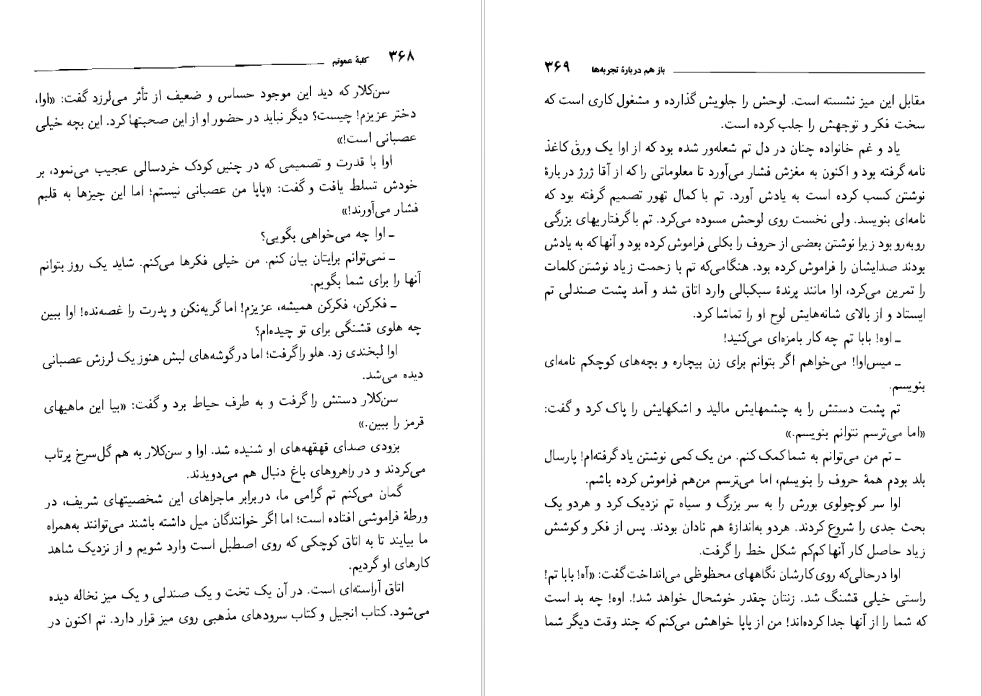 ۳۶۸ کلبهٔ عموتم
سن‌کلار که دید این موجود حساس و ضعیف از تأثر می‌لرزد گفت: «اوا،
دختر عزیزم! چیست؟ دیگر نباید در حضور او از این صحبتها کرد. این بچه خیلی
عصبانی است!»
اوا با قدرت و تصمیمی که در چنین کودک خردسالی عجیب می‌نمود، بر
خودش تسلط یافت و گفت: «پاپا من عصبانی نیستم؛ اما این چیزها به قلبم
فشار می‌آورند!»
ـ اوا چه می‌خواهی بگویی؟
ـ نمی‌توانم برایتان بیان کنم. من خیلی فکرها می‌کنم. شاید یک روز بتوانم
آنها را برای شما بگویم.
ـ فکرکن، فکرکن همیشه، عزیزم! اما گریه‌نکن و پدرت را غصه‌نده! اوا ببین
چه هلوی قشنگی برای تو چیده‌ام؟
اوا لبخندی زد. هلو راگرفت؛ اما درگوشه‌های لبش هنوز یک لرزش عصبانی
دیده می‌شد.
سن‌کلار دستش را گرفت و به طرف حیاط برد و گفت: «بیا این ماهیهای
قرمز را ببین.»
بزودی صدای قهقهه‌های او شنیده شد. اوا و سن‌کلار به هم گل‌سرخ پرتاب
می‌کردند و در راهروهای باغ دنبال هم می‌دویدند.
گمان می‌کنم تم گرامی ما، دربرابر ماجراهای این شخصیتهای شریف، در
ورطهٔ فراموشی افتاده است؛ اما اگر خوانندگان میل داشته باشند می‌توانند به‌همراه
ما بیایند تا به اتاق کوچکی که روی اصطبل است وارد شویم و از نزدیک شاهد
کارهای او گردیم.
اتاق آراسته‌ای است. در آن یک تخت و یک صندلی و یک میز نخاله دیده
می‌شود. کتاب انجیل و کتاب سرودهای مذهبی روی میز قرار دارد. تم اکنون در
باز هم دربارهٔ تجربه‌ها ۳۶۹
مقابل این میز نشسته است. لوحش را جلویش گذارده و مشغول کاری است که
سخت فکر و توجهش را جلب کرده است.
یاد و غم خانواده چنان در دل تم شعله‌ور شده بود که از اوا یک ورق کاغذ
نامه گرفته بود و اکنون به مغزش فشار می‌آورد تا معلوماتی را که از آقا ژرژ در بارهٔ
نوشتن کسب کرده است به یادش آورد. تم با کمال تهور تصمیم گرفته بود که
نامه‌ای بنویسد. ولی نخست روی لوحش مسوده می‌کرد. تم با گرفتاریهای بزرگی
روبه‌رو بود زیرا نوشتن بعضی از حروف را بکلی فراموش کرده بود و آنها که به یادش
بودند صدایشان را فراموش کرده بود. هنگامی‌که تم با زحمت زیاد نوشتن کلمات
را تمرین می‌کرد، اوا مانند پرندهٔ سبکبالی وارد اتاق شد و آمد پشت صندلی تم
ایستاد و از بالای شانه‌هایش لوح او را تماشا کرد.
ـ اوه! بابا تم چه کار بامزه‌ای می‌کنید!
ـ میس‌اوا! می‌خواهم اگر بتوانم برای زن بیچاره و بچه‌های کوچکم نامه‌ای
بنویسم.
تم پشت دستش را به چشمهایش مالید و اشکهایش را پاک کرد و گفت:
«اما می‌ترسم نتوانم بنویسم.»
ـ تم من می‌توانم به شما کمک کنم. من یک کمی نوشتن یاد گرفته‌ام! پارسال
بلد بودم همهٔ حروف را بنویسم، اما می‌ترسم من‌هم فراموش کرده باشم.
اوا سر کوچولوی بورش را به سر بزرگ و سیاه تم نزدیک کرد و هردو یک
بحث جدی را شروع کردند. هردو به‌اندازهٔ هم نادان بودند. پس از فکر و کوشش
زیاد حاصل کار آنها کم‌کم شکل خط را گرفت.
اوا درحالی‌که روی کارشان نگاههای محظوظی می‌انداخت گفت: «آه! بابا تم!
راستی خیلی قشنگ شد. زنتان چقدر خوشحال خواهد شد!. اوه! چه بد است
که شما را از آنها جدا کرده‌اند! من از پاپا خواهش می‌کنم که چند وقت دیگر شما